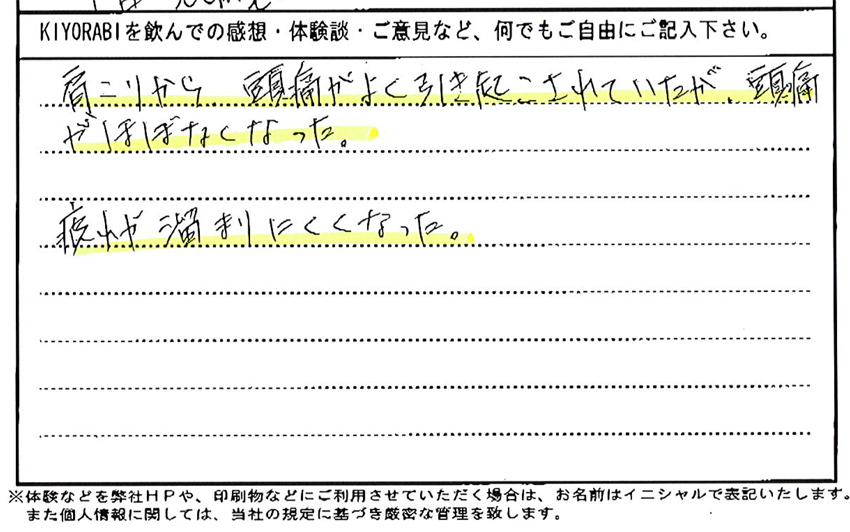 KIYORABIを飲んでの感想・体験談・ご意見など、何でもご自由にご記入下さい。
肩こりから 頭痛がよく引き起こされていたが、頭痛
がほぼなくなった。
疲れが溜まりにくくなった。
※体験などを弊社HPや、印刷物などにご利用させていただく場合は、お名前はイニシャルで表記いたします。
また個人情報に関しては、当社の規定に基づき厳密な管理を致します。